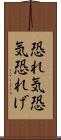 恐れ気恐
気恐れげ